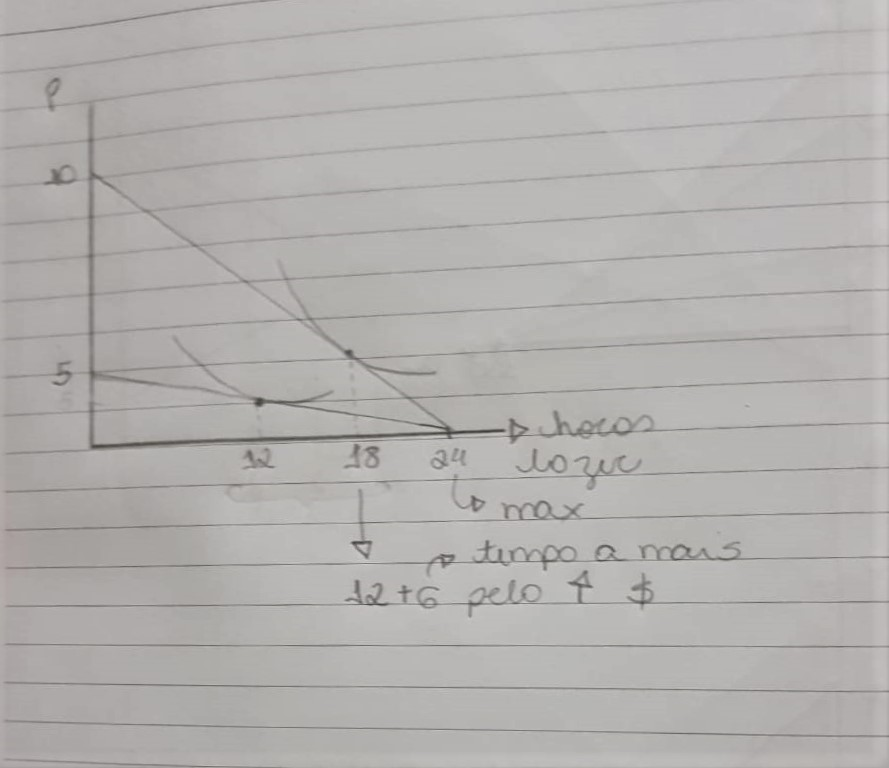 P
10
5
12 18 24 → horas
lazer
↳ max
↓ → tempo a mais
12+6 pelo ↑ $